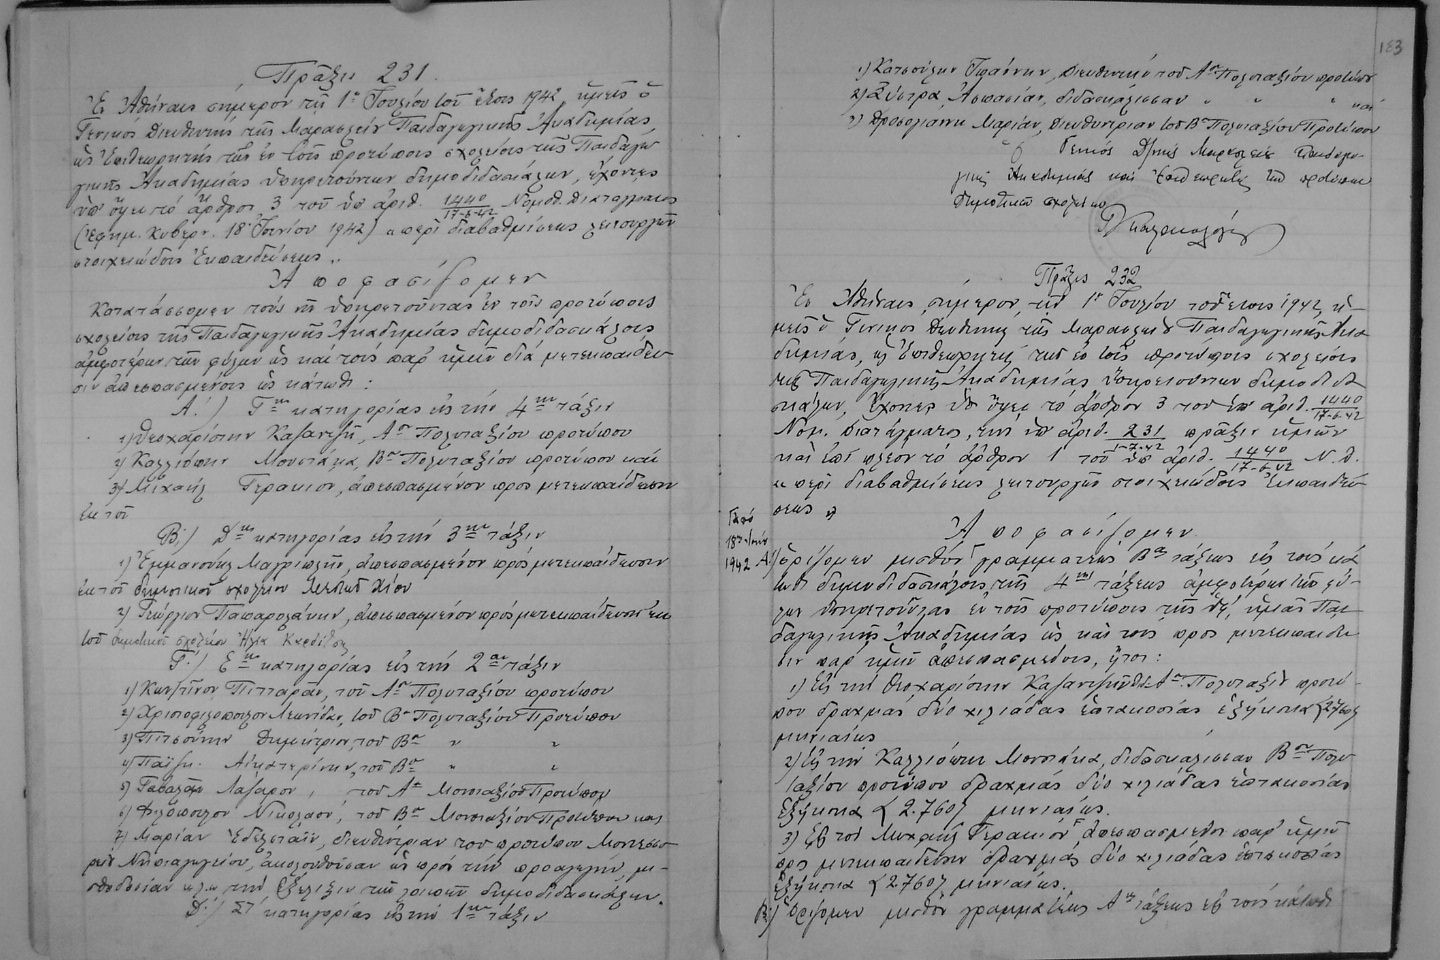 Πρᾶξις 231.
Ἐν Ἀθήναις σήμερον τῇ 1ῃ Ἰουλίου τοῦ ἔτους 1942, ἡμεῖς ὁ
Γενικὸς Διευθυντὴς τῆς Μαρασλείου Παιδαγωγικῆς Ἀκαδημίας,
ὡς Ἐπιθεωρητὴς τῶν ἐν τοῖς προτύποις σχολείοις τῆς Παιδαγω
γικῆς Ἀκαδημίας ὑπηρετούντων δημοδιδασκάλων, ἔχοντες
ὑπ' ὄψει τὸ ἄρθρον 3 τοῦ ὑπ' ἀριθ. 1440/17-6-42 Νομοθ. Διατάγματος
(Ἐφημ. Κυβερν. 18 Ἰουνίου 1942) "περὶ διαβαθμίσεως λειτουργῶν
στοιχειώδους Ἐκπαιδεύσεως"
Ἀποφασίζομεν
Κατατάσσομεν τοὺς ὑπηρετοῦντας ἐν τοῖς προτύποις
σχολείοις τῆς Παιδαγωγικῆς Ἀκαδημίας δημοδιδασκάλους
ἀμφοτέρων τῶν φύλων ὡς καὶ τοὺς παρ' ἡμῖν διὰ μετεκπαίδευ
σιν ἀπεσπασμένους ὡς κάτωθι:
Α.') Γης κατηγορίας εἰς τὴν 4ην τάξιν
1) Θεοχαρίστην Καζαντζῆ, Αου Πολυταξίου προτύπου
2) Καλλιόπην Μουστάκα, Βου Πολυταξίου προτύπου καὶ
3) Μιχαὴλ Γερακιον, ἀπεσπασμένον πρὸς μετεκπαίδευσιν
ἐκ τοῦ
Β.') Δης κατηγορίας εἰς τὴν 3ην τάξιν
1) Ἐμμανουὴλ ἀπεσπασμένον πρὸς μετεκπαίδευσιν
ἐκ τοῦ δημοτικοῦ σχολείου Χίου
2) Γεώργιον ἀπεσπασμένον πρὸς μετεκπαίδευσιν ἐκ
τοῦ δημοτικοῦ σχολείου Καρδίτσης
Γ.') Εης κατηγορίας εἰς τὴν 2αν τάξιν
1) Κων/τῖνον Πίτταρᾶν, τοῦ Αου Πολυταξίου προτύπου
2) Χριστοφιλόπουλον Λεωνίδαν, τοῦ Βου Πολυταξίου Προτύπου
3) Πιτσούνην Δημήτριον, τοῦ Βου " "
4) Παΐζη Αἰκατερίνην, τοῦ Βου " "
5) Λάζαρον, τοῦ Αου Μονοταξίου Προτύπου
6) Φιλόπουλον Νικόλαον, τοῦ Βου Μονοταξίου Προτύπου καὶ
7) Μαρίαν διευθύντριαν τοῦ προτύπου Μοντεσσο
ριανοῦ Νηπιαγωγείου, ἀκολουθοῦσαν ὡς πρὸς τὴν προαγωγήν, μι-
σθοδοσίαν κ.λ.π τὴν ἐξέλιξιν τῶν λοιπῶν δημοδιδασκάλων.
Δ.') ΣΤ' κατηγορίας εἰς τὴν 1ην τάξιν
183
1) Κατσούλην Ἰωάννην, Διευθυντὴν τοῦ Αου Πολυταξίου προτύπου
2) Ἀσπασίαν, διδασκάλισσαν " " " καὶ
3) Μαρίαν, Διευθύντριαν τοῦ Βου Πολυταξίου Προτύπου
Ὁ Γενικὸς Δ/ντὴς Μαρασλείου Παιδαγω-
γικῆς Ἀκαδημίας καὶ Ἐπιθεωρητὴς τῶν προτύπων
Δημοτικῶν σχολείων
Πρᾶξις 232
Ἐν Ἀθήναις, σήμερον, τὴν 1ην Ἰουλίου τοῦ ἔτους 1942, ἡ-
μεῖς ὁ Γενικὸς Διευθυντὴς τῆς Μαρασλείου Παιδαγωγικῆς Ἀκα
δημίας, ὡς Ἐπιθεωρητὴς τῶν ἐν τοῖς προτύποις σχολείοις
τῆς Παιδαγωγικῆς Ἀκαδημίας ὑπηρετούντων δημοδιδα
σκάλων, ἔχοντες ὑπ' ὄψει τὸ ἄρθρον 3 τοῦ ὑπ' ἀριθ. 1440/17-6-42
Νομ. Διατάγματος, τὴν ὑπ' ἀριθ. 231/1-7-42 πρᾶξιν ἡμῶν
καὶ ἐπὶ πλέον τὸ ἄρθρον 1 τοῦ ὑπ' ἀριθ. 1440/17-6-42 Ν.Δ.
"περὶ διαβαθμίσεως λειτουργῶν στοιχειώδους Ἐκπαιδεύ
σεως"
Ἀποφασίζομεν
ἀπὸ
18ης
1942
Α') ὁρίζομεν μισθὸν γραμματέως Βας τάξεως εἰς τοὺς κά
τωθι δημοδιδασκάλους τῆς 4ης τάξεως ἀμφοτέρων τῶν φύ-
λων ὑπηρετοῦντας ἐν τοῖς προτύποις τῆς ὑφ' ἡμᾶς Παι-
δαγωγικῆς Ἀκαδημίας ὡς καὶ τοὺς πρὸς μετεκπαίδευ
σιν παρ' ἡμῖν ἀπεσπασμένους, ἤτοι:
1) Εἰς τὴν Θεοχαρίστην Καζαντζῆ Αου Πολυταξίου προτύ-
που δραχμὰς δύο χιλιάδας ἑπτακοσίας ἑξήκοντα (2760)
μηνιαίως
2) Εἰς τὴν Καλλιόπην Μουστάκα, διδασκάλισσαν Βου Πολυ
ταξίου προτύπου δραχμὰς δύο χιλιάδας ἑπτακοσίας
ἑξήκοντα (2.760) μηνιαίως.
3) Εἰς τὸν Μιχαὴλ Γερακιον ἀπεσπασμένον παρ' ἡμῖν
πρὸς μετεκπαίδευσιν δραχμὰς δύο χιλιάδας ἑπτακοσίας
ἑξήκοντα (2760) μηνιαίως.
Β') Ὁρίζομεν μισθὸν γραμματέως Αης τάξεως εἰς τοὺς κάτωθι